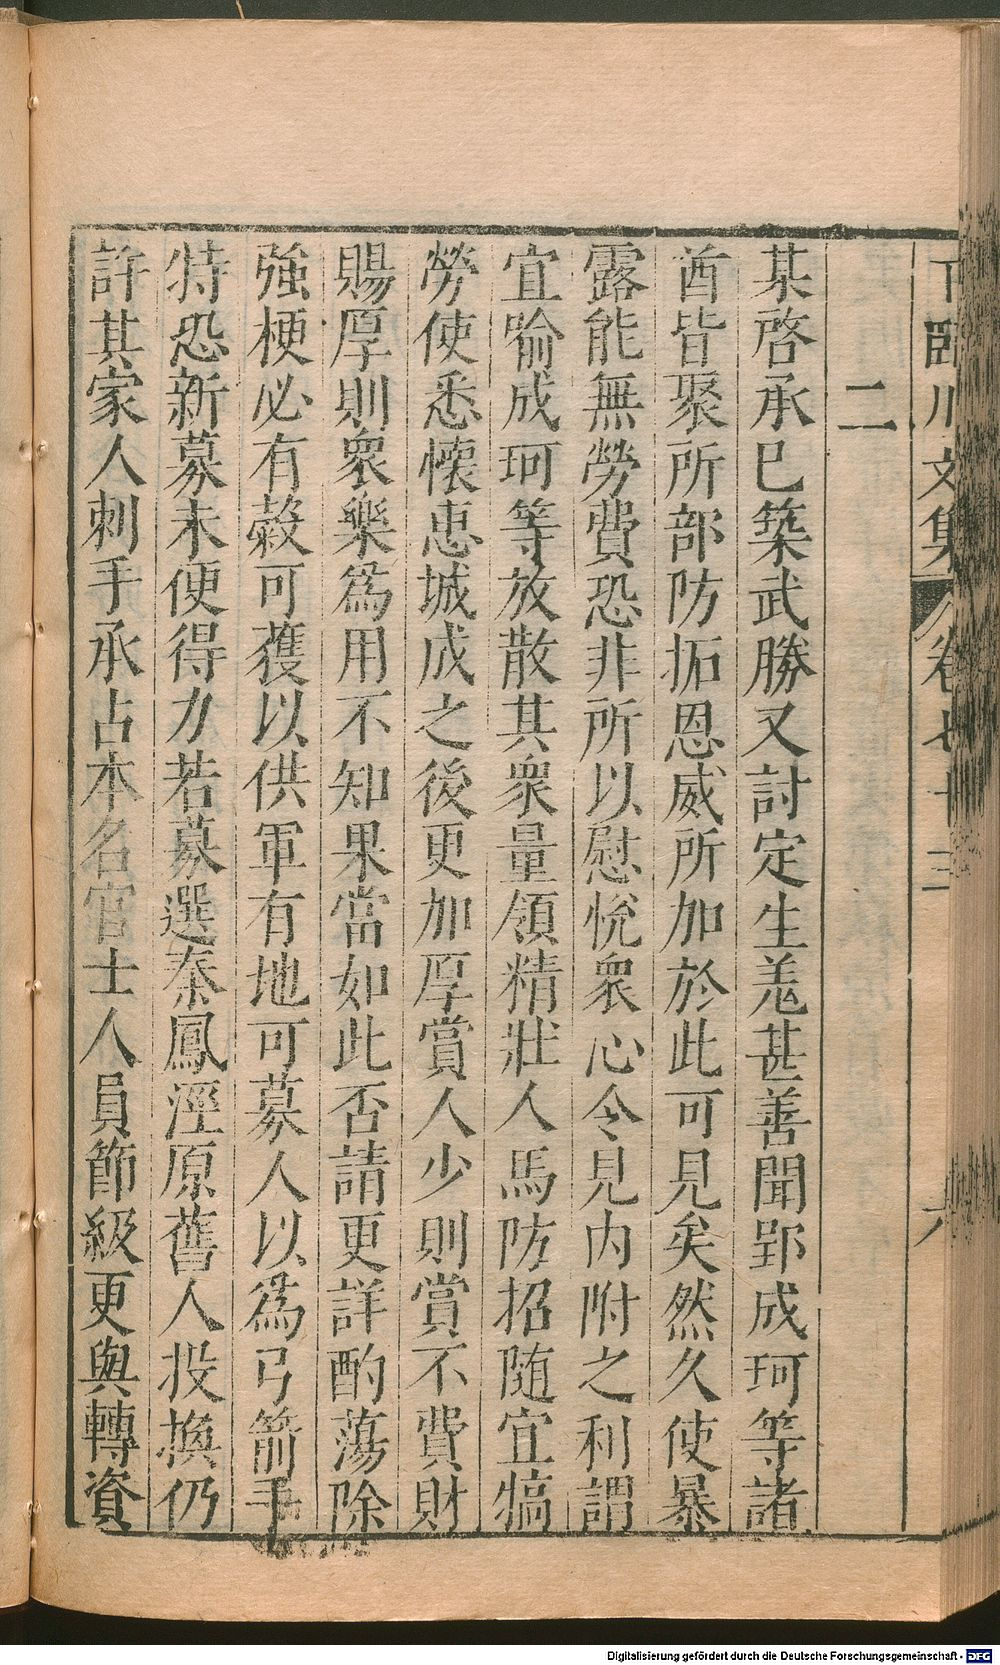 臨川文集 卷七十三 六
二
某啓承已築武勝又討定生羌甚善聞郢成珂等諸
酋皆聚所部防拓恩威所加於此可見矣然久使暴
露能無勞費恐非所以慰悅衆心令見内附之利謂
宜喻成珂等放散其衆量領精壯人馬防招隨宜犒
勞使悉懷惠城成之後更加厚賞人少則賞不費財
賜厚則衆樂爲用不知果當如此否請更詳酌蕩除
強梗必有穀可獲以供軍有地可募人以爲弓箭手
特恐新募未便得力若募選秦鳳涇原舊人投換仍
許其家人刺手承占本名官士人員節級更與轉資
Digitalisierung gefördert durch die Deutsche Forschungsgemeinschaft - DFG